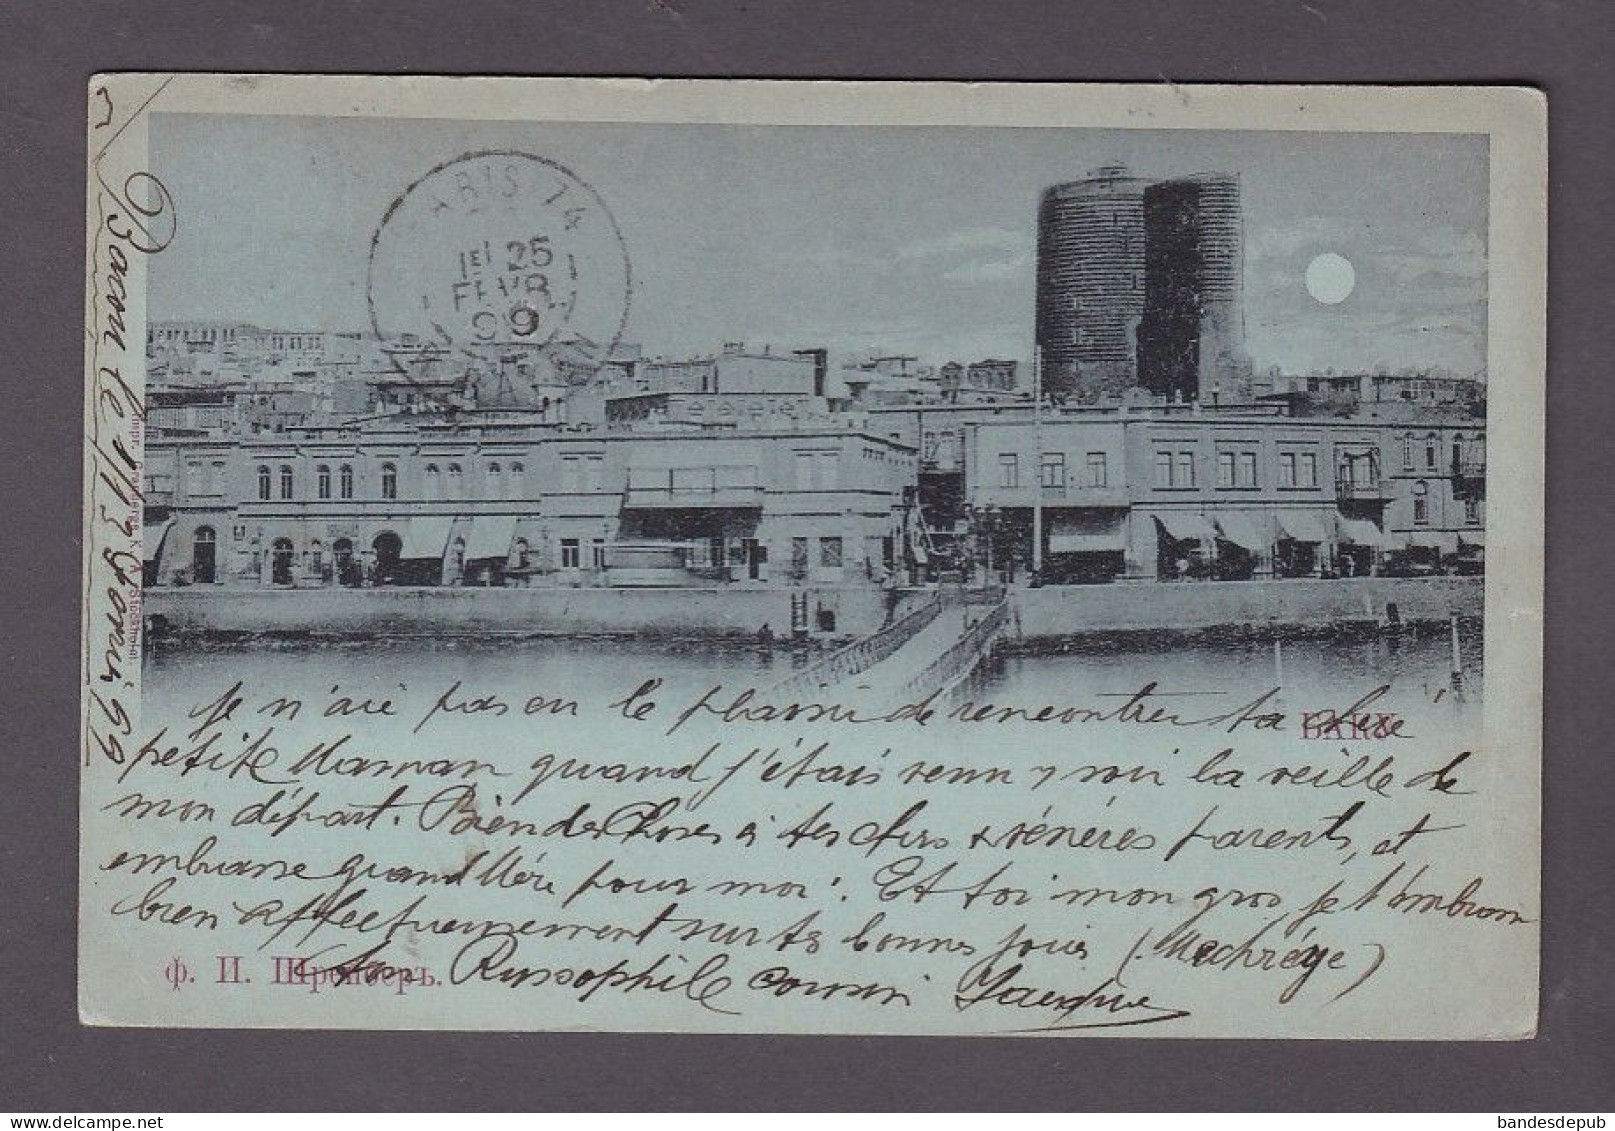 PARIS 74
1E 25
FEVR
99
Bacou le 1/13 février 99
Impr. Granbergs, Stockholm.
BAKU
Je n'ai pas eu le plaisir de rencontrer ta chère
petite Maman quand j'étais venu voir la veille de
mon départ. Bien des choses à tes chers & vénérés parents, et
embrasse grand Mère pour moi. Et toi mon gros je t'embrasse
bien affectueusement sur tes bonnes joues
Ton Russophile cousin Jacques
Ф. И. Шрейберъ.
bandesdepub